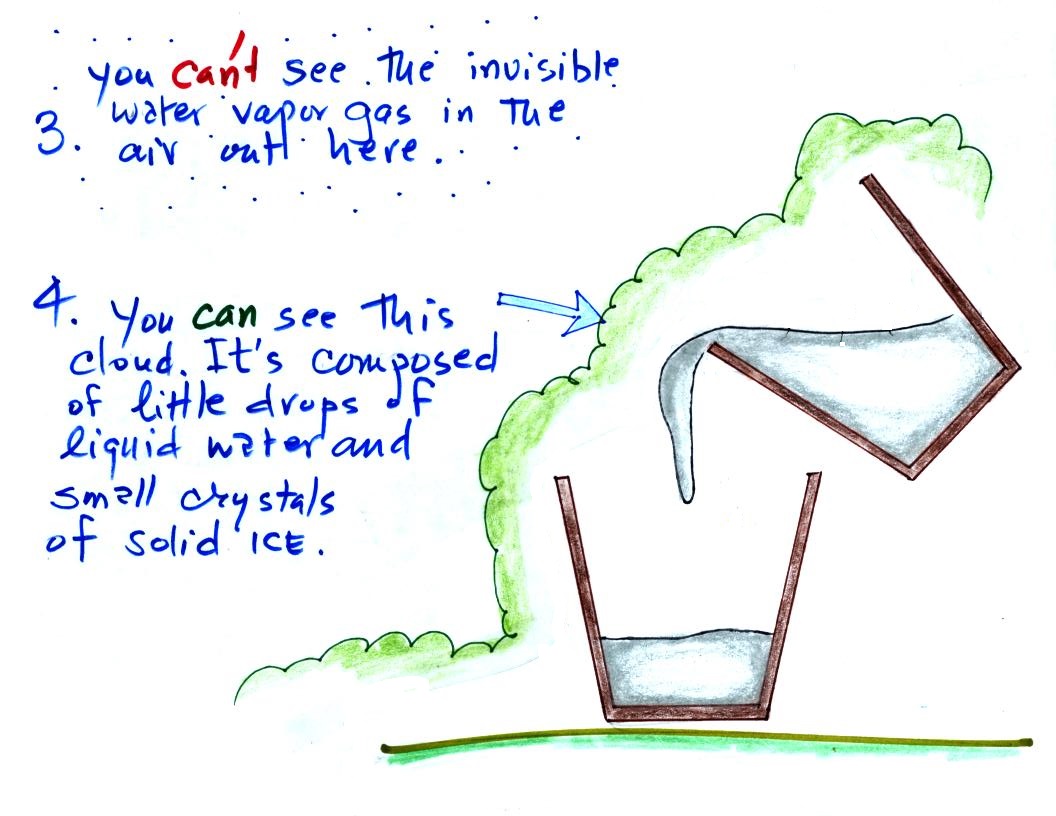 you can't see the invisible
3. water vapor gas in the
air out here.
4. You can see this
cloud. It's composed
of little drops of
liquid water and
small crystals
of solid ICE.